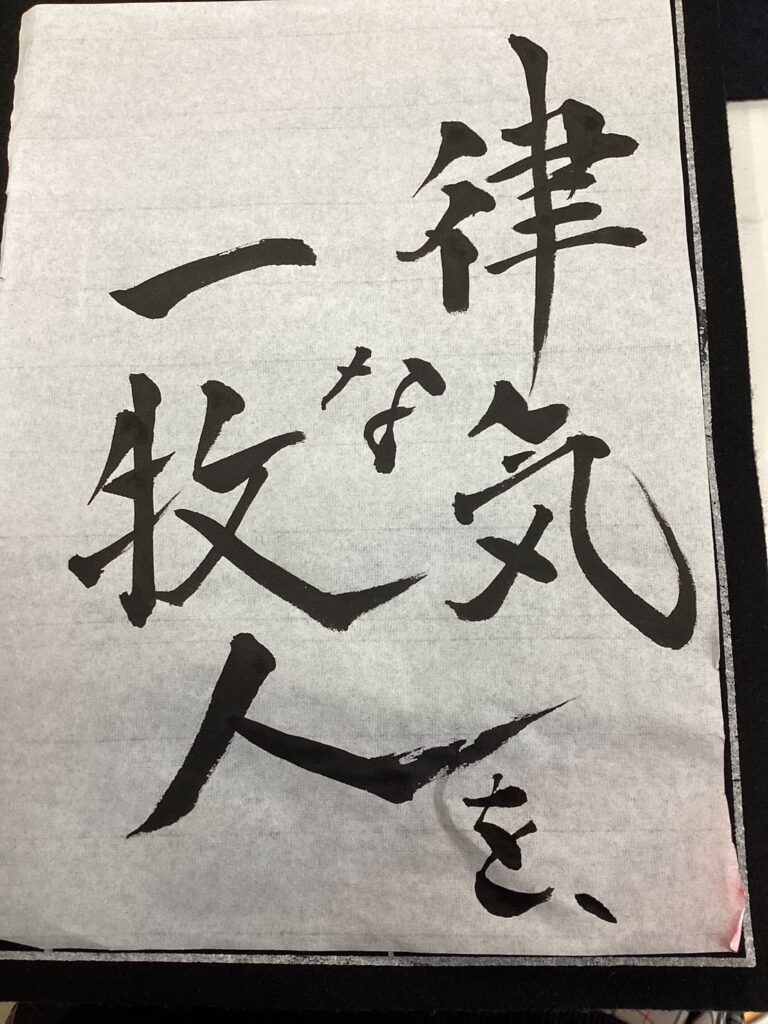 律気な
一牧人を、